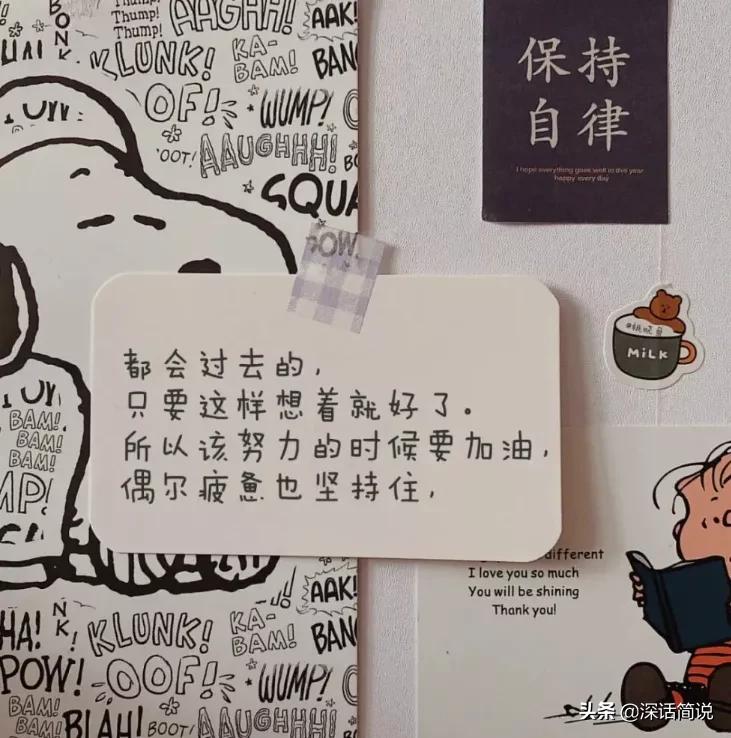 Thump!
Thump!
Thump!
AAGHH!
AAK!
BONK
KLUNK!
KA-BAM!
OOF!
WUMP!
'OOT!
AAUGHHH!
POW!
保持
自律
I hope everything goes well in this year
happy every day
MiLK
都会过去的，
只要这样想着就好了。
所以该努力的时候要加油，
偶尔疲惫也坚持住，
BAM!
BAM!
BAM!
different
I love you so much
You will be shining
Thank you!
HA!
KLUNK!
KA-BAM!
AAK!
POW!
OOF!
WUMP!
BAM!
BAM!
BLAH!
BOOT!
头条 @深话简说